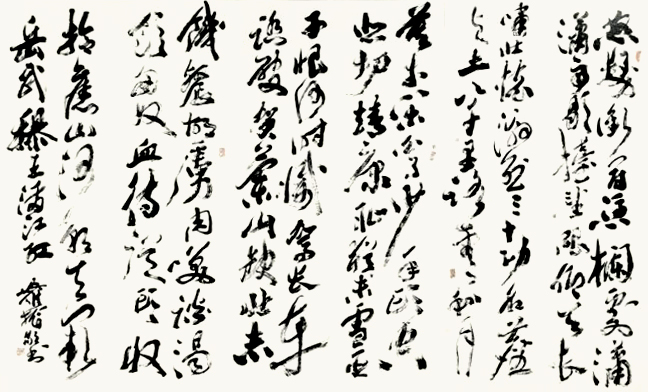 怒髮衝冠憑欄處瀟
瀟雨歇擡望眼仰天長
嘯壯懷激烈三十功名塵
與土八千里路雲和月
莫等閑白了少年頭空
悲切靖康恥猶未雪臣
子恨何時滅駕長車
踏破賀蘭山缺壯志
饑餐胡虜肉笑談渴
飲匈奴血待從頭收
拾舊山河朝天闕
岳武穆王滿江紅